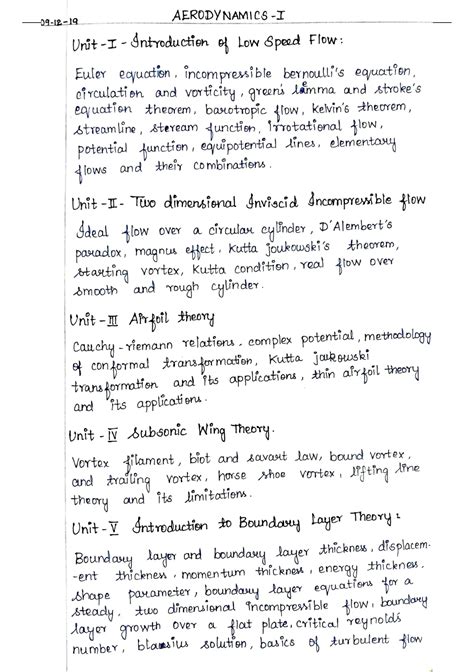 09-12-19
AERODYNAMICS-I
Unit-I- Introduction of Low Speed Flow:
Euler equation, incompressible bernoulli's equation,
circulation and vorticity, green's lemma and stroke's
equation theorem, barotropic flow, kelvin's theorem,
streamline, steream function, irrotational flow,
potential function, equipotential lines, elementary
flows and their combinations.
Unit-II- Two dimensional Inviscid Incompressible flow
Ideal flow over a circular cylinder, D'Alembert's
paradox, magnus effect, Kutta joukowski's theorem,
starting vortex, Kutta condition, real flow over
smooth and rough cylinder.
Unit-III Airfoil theory
Cauchy-riemann relations, complex potential, methodology
of conformal transformation, Kutta joukowski
transformation and its applications, thin airfoil theory
and its applications.
Unit-IV Subsonic Wing Theory.
Vortex filament, biot and savart law, bound vortex,
and trailing vortex, horse shoe vortex, lifting line
theory and its limitations.
Unit-V Introduction to Boundary Layer Theory:
Boundary layer and boundary layer thickness, displacem-
-ent thickness, momentum thickness, energy thickness,
shape parameter, boundary layer equations for a
steady, two dimensional incompressible flow, boundary
layer growth over a flat plate, critical reynolds
number, blassius solution, basics of turbulent flow